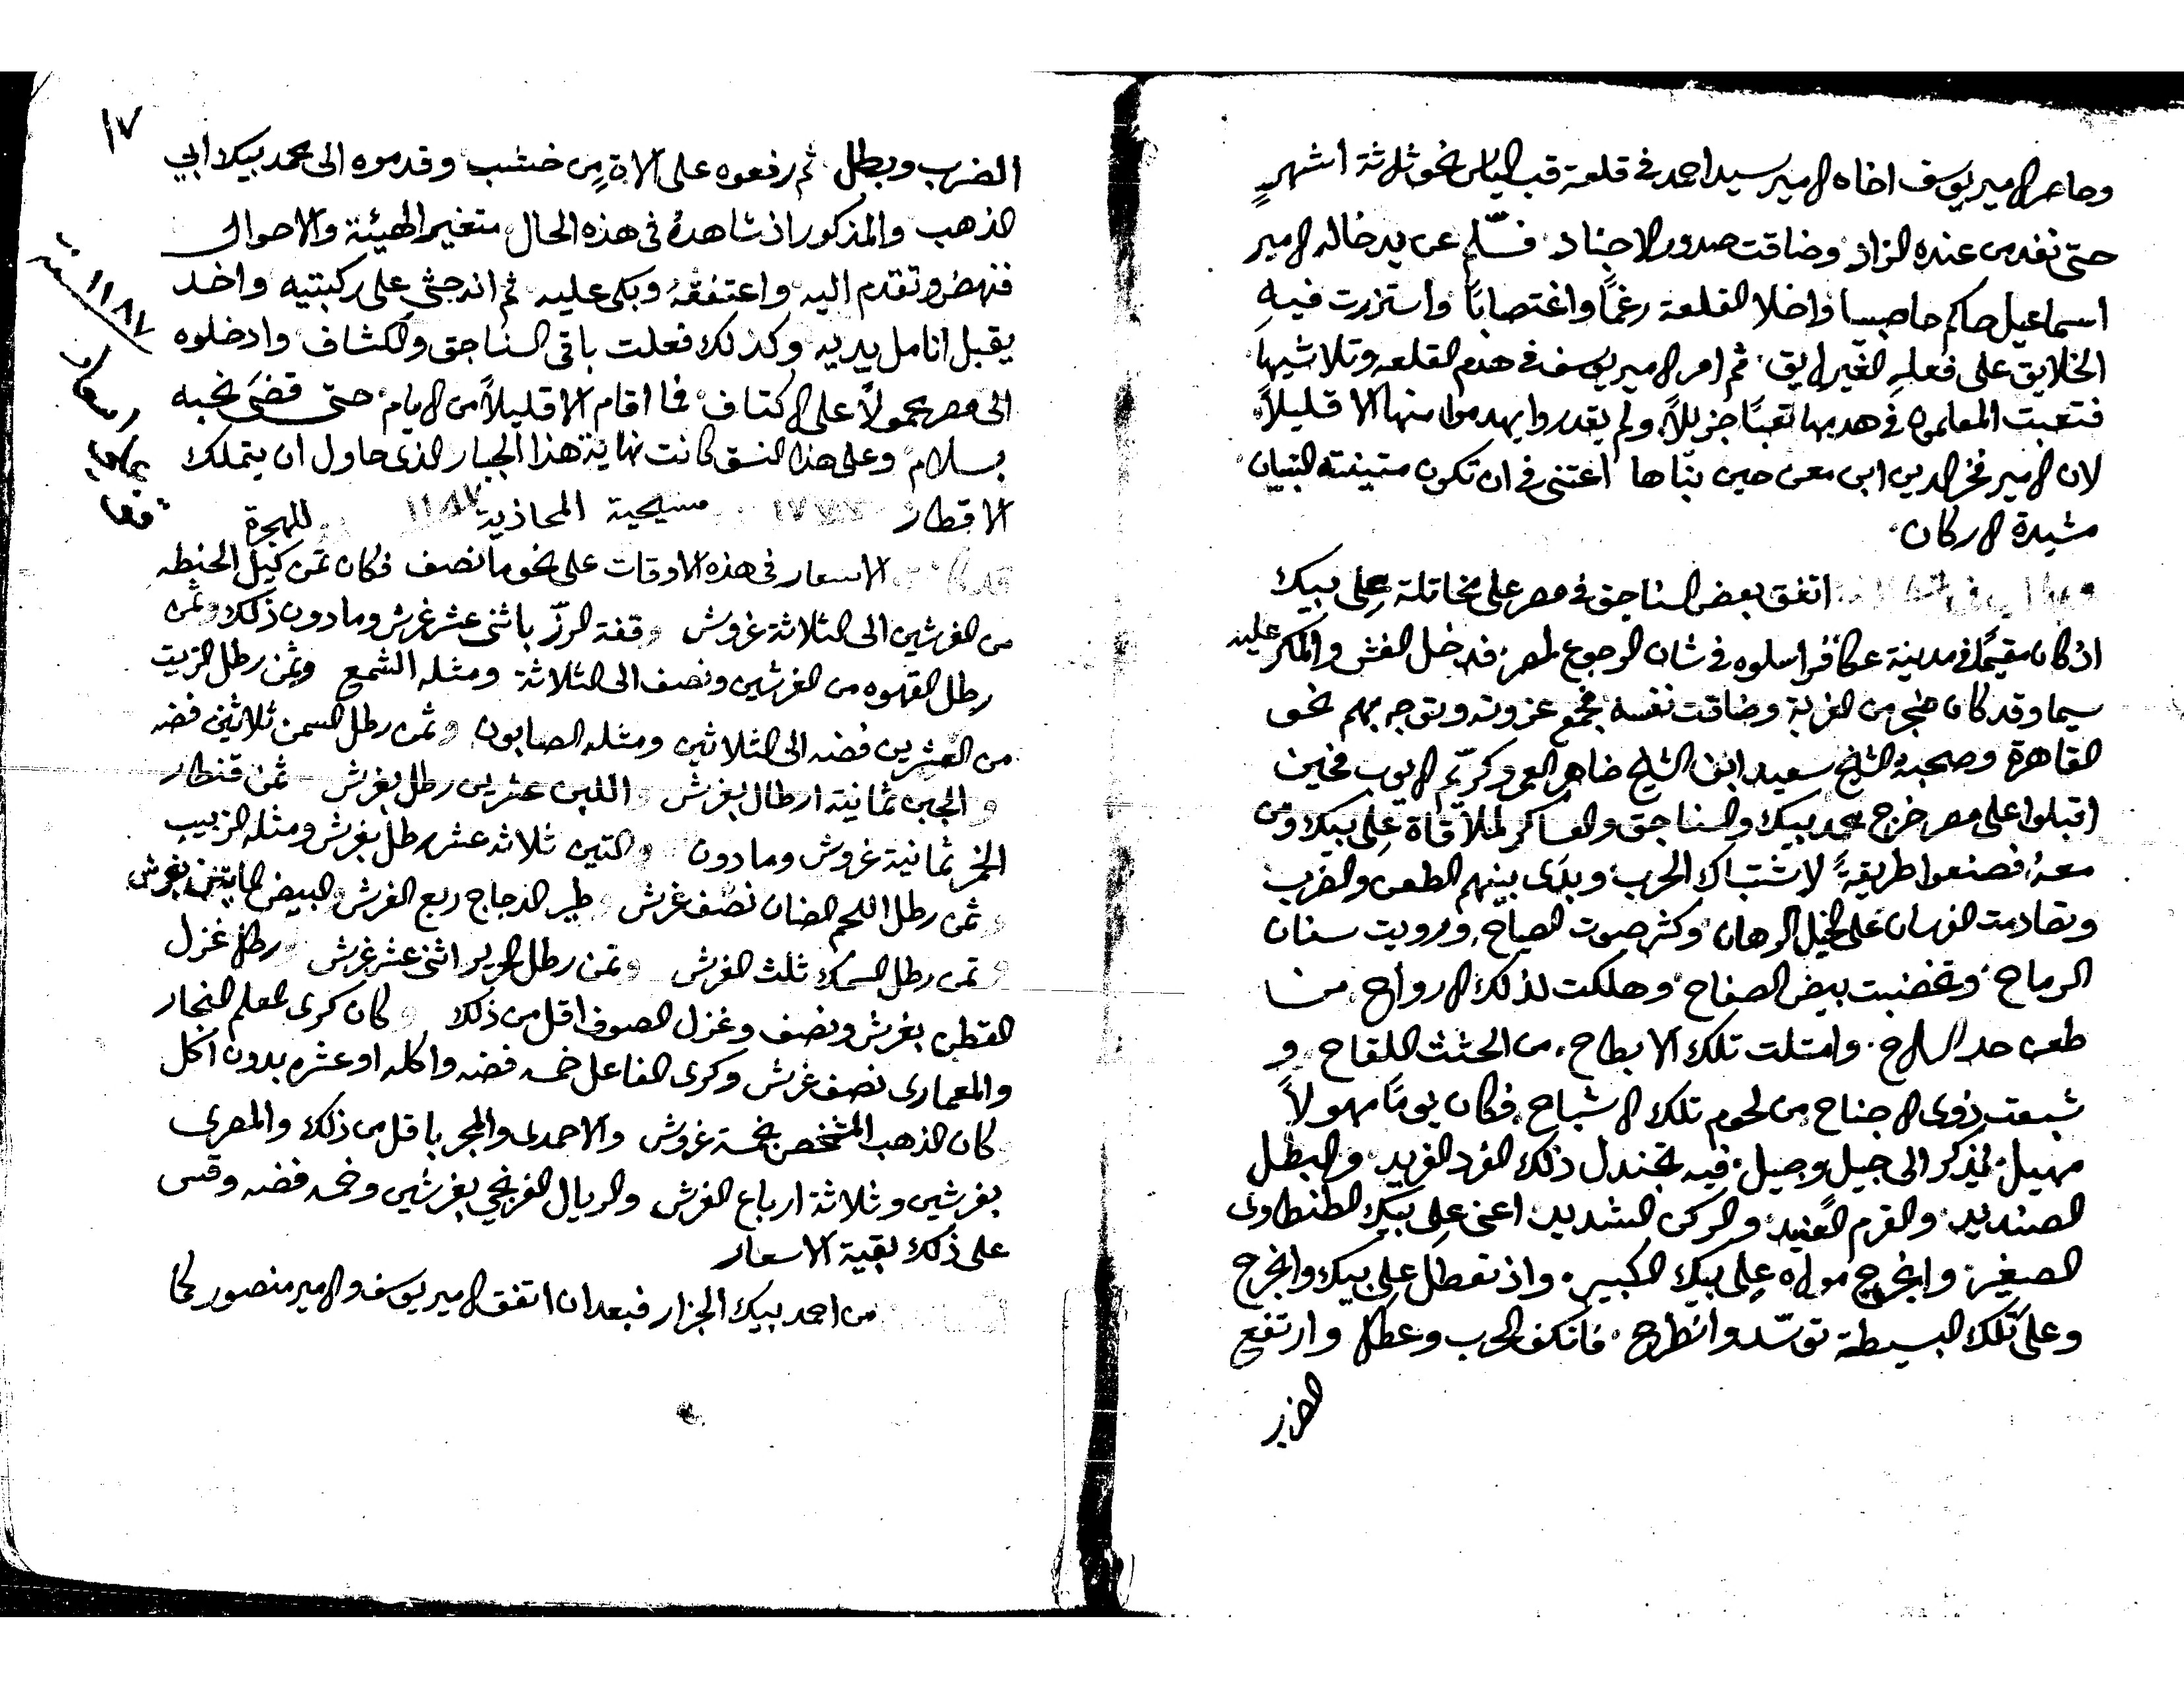 وحاصر الامير يوسف اخاه الامير سيد احمد في قلعة قب الياس نحو ثلاثة اشهرٍ
حتى نفد من عنده الزاد وضاقت صدور الاجناد فسلّم عن يد خاله الامير
اسماعيل حاكم حاصبيا واخلا القلعة رغمًا واغتصابًا واستزرت فيه
الخلايق على فعلهِ الغير لايق. ثم امر الامير يوسف في هدم القلعه وتلاشيها
فتعبت المعلمون في هدمها تعبًا جزيلاً، ولم يقدروا يهدموا منها الا قليلاً،
لان الامير فخر الدين ابن معن حين بنّاها اعتنى في ان تكون متينته البنيان
مشيدة الاركان.
اتفق بعض السناجق في مصر على مخاتلة علي بيك
اذ كان مقيمًا في مدينة عكا فراسلوه في شان الرجوع لمصر، فدخل الغش والمكر عليه
سيما وقد كان ضجر من الغربة وضاقت نفسه فجمع عزوته وتوجه بهم نحو
القاهرة وصحبة الشيخ سعيد ابن الشيخ ضاهر العمر وكريّم الايوب فحين
اقبلوا على مصر خرج محمد بيك والسناجق والعساكر لملاقاة علي بيك ومن
معهُ فصنعوا طريقةً لاشتباك الحرب وبدى بينهم الطعن والضرب
وتصادمت الفرسان على الخيل الرهان وكثر صوت الصياح، ورويت سنان
الرماح. وتخضبت بيض الصفاح وهلكت لذلك الارواح، من
طعن حد السلاح. وامتلت تلك الابطاح، من الجثث اللقاح، و
شبعت ذوي الاجناح من لحوم تلك الاشباح، فكان يومًا مهولاً
مهيل يُذكر الى جيل وجيل. فيه تجندل ذلك الفرد الفريد والبطل
الصنديد والقرم العنيد والركن الشديد اعني علي بيك الطنطاوى
الصغير، وانجرح مولاه علي بيك الكبير. واذ تعطل علي بيك وانجرح
وعلى تلك البسيطة توسّد وانطرح. فانكف الحرب وعطل وارتفع
الضرب
١٧
الضرب وبطل ثم رفعوه على الاةٍ من خشب وقدموه الى محمد بيك ابي
الذهب والمذكور اذ شاهدهُ في هذه الحال متغير الهيئة والاحوال
فنهض وتقدم اليه واعتنقهُ وبكى عليه ثم انه جثى على ركبتيه واخد
يقبل انامل يديه وكذلك فعلت باقي السناجق والكشاف وادخلوه
الى مصر محمولاً على الاكتاف فما اقام الا قليلاً من الايام حتى قضَى نحبه
بسلام وعلى هذا النسق كانت نهاية هذا الجبار الذى حاول ان يتملك
الاقطار ١٧٧٣ مسيحية المحاذية ١١٨٧ للهجرة
١١٨٧ سنة
الاسعار في هذه الاوقات على نحو ما نصف فكان ثمن كيل الحنطه
من الغرشين الى الثلاثة غروش وقفة الرزّ باثنى عشر غرش وما دون ذلك وثمن
رطل القهوه من الغرشين ونصف الى الثلاثة ومثله الشمع وثمن رطل الزيت
من العشرين فضه الى الثلاثين ومثله الصابون وثمن رطل السمن ثلاثين فضه
والجبن ثمانية ارطال بغرش واللبن عشرين رطل بغرش ثمن قنطار
الخمر ثمانية غروش وما دون والتين ثلاثه عشر رطل بغرش ومثله الزبيب
وثمن رطل اللحم الضان نصف غرش وطير الدجاج ربع الغرش والبيض المايتين بغرش
وثمن رطل السمك ثلث الغرش وثمن رطل الحرير اثنى عشر غرش ورطل غزل
القطن بغرش ونصف وغزل الصوف اقل من ذلك وكان كرى المعلم النجار
والمعمارى نصف غرش وكرى الفاعل خمسه فضه واكله او عشره بدون اكل
كان الذهب المشخص بخمسة غروش والاحمدى والمجر باقل من ذلك والمصرى
بغرشين وثلاثة ارباع الغرش والريال الفرنجي بغرشين وخمسه فضه وقس
على ذلك بقية الاسعار
من احمد بيك الجزار فبعد ان اتفق الامير يوسف والامير منصور كما